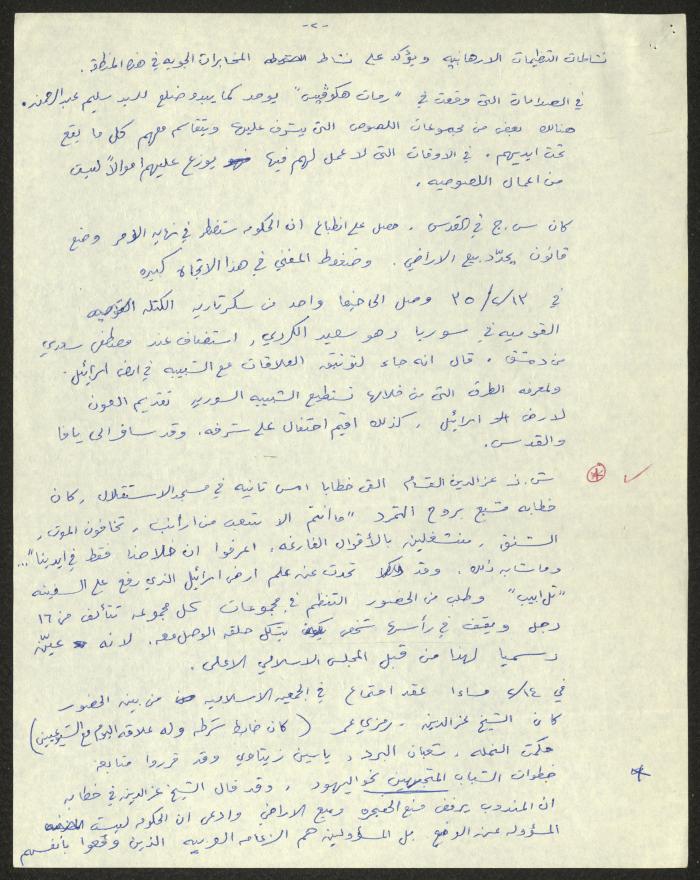 -٢-
نشاطات التنظيمات الارهابيه ويؤكد على نشاط المخابرات الجويه في هذه المنطقة.
في الصدامات التي وقعت في "رمات هكوفيس" يوجد كما يبدو ضلع للسيد سليم عبد الرحمن.
هنالك بعض من مجموعات اللصوص التي يشرف عليها ويتقاسم معهم كل ما يقع
تحت ايديهم. في الاوقات التي لا عمل لهم فيها يوزع عليهم اموالاً ليست
من اعمال اللصوصيه.
كان س.ج في القدس. حصل على انطباع ان الحكومه ستضطر في نهايه الأمر وضع
قانون يحدّد بيع الاراضي. وضغوط المفتي في هذا الاتجاه كبيره
في ٣٥/٢/١٣ وصل الى حيفا واحد من سكرتاريه الكتله
القوميه في سوريا وهو سعيد الكردي, استضاف عند مصطفى سوري
من دمشق. قال انه جاء لتوثيق العلاقات مع الشبيبه في ارض اسرائيل
ولمعرفه الطرق التي من خلالها تستطيع الشبيبه السوريه تقديم العون
لارض اسرائيل, كذلك اقيم احتفال على شرفه. وقد سافر الى يافا
والقدس.
ش.ن. عز الدين القسام القى خطابا امس ثانيه في مسجد الاستقلال, كان
خطابه مشبع بروح التمرد "ما انتم الا شعب من ارانب, تخافون الموت,
الشنق, منشغلين بالأقوال الفارغه, اعرفوا ان خلاصنا فقط في ايدينا"...
وما شابه ذلك. وقد تحدث عن علم ارض اسرائيل الذي رفع على السفينه
"تل ابيب" وطلب من الحضور التنظم في مجموعات كل مجموعه تتألف من ١٦
رجل ويقف في رأسها شخص يشكل حلقه الوصل معه. لانه عيّن
رسميا لهذا من قبل المجلس الاسلامي الاعلى.
في ٢/١٤ مساءا عقد اجتماع في الجمعيه الاسلاميه من بين الحضور
كان الشيخ عز الدين, رمزي عمر (كان ضابط شرطه وله علاقه اليوم مع الشيوعيين)
حكمت النمله, شعبان البرد, ياسين زيتاوي وقد قرروا متابعة
خطوات الشباب المتجهين نحو اليهود. وقد قال الشيخ عز الدين في خطابه
ان المندوب يرفض منع الهجره وبيع الاراضي وادعى ان الحكومه ليست
المسؤوله عن الوضع بل المسؤولين هم الزعامه العربيه الذين وقعوا بأنفسهم